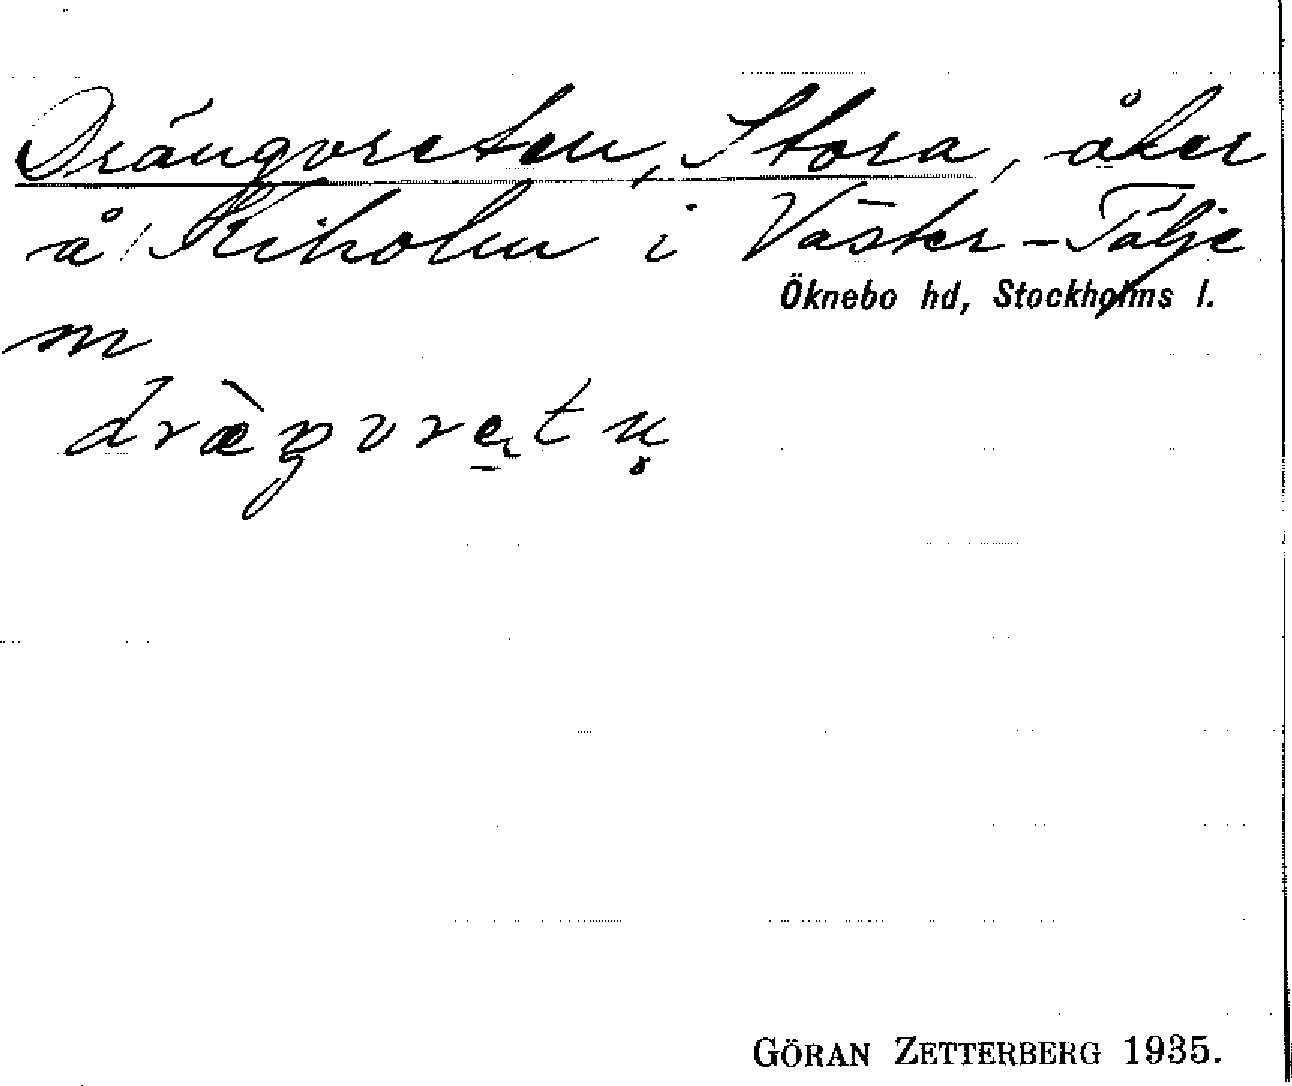 Drängvreten, Stora, åker
å Kiholm i Väster-Tälje
Öknebo hd, Stockholms l.
m
dræ̀ŋvretn̥
GÖRAN ZETTERBERG 1935.